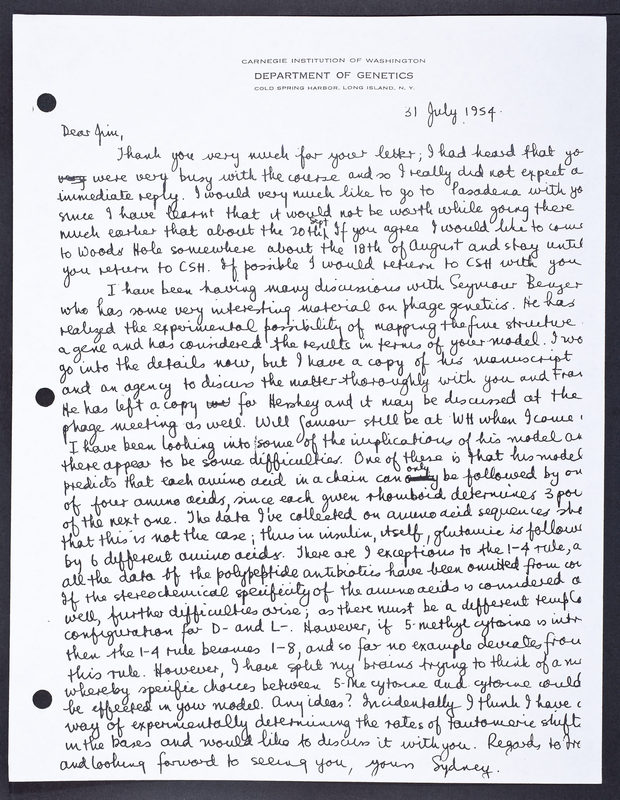 CARNEGIE INSTITUTION OF WASHINGTON
DEPARTMENT OF GENETICS
COLD SPRING HARBOR, LONG ISLAND, N. Y.
31 July 1954.
Dear Jim,
Thank you very much for your letter; I had heard that yo
very were very busy with the course and so I really did not expect a
immediate reply. I would very much like to go to Pasadena with yo
since I have learnt that it would not be worth while going there
much earlier that about the 20th Sept. If you agree I would like to come
to Woods Hole somewhere about the 18th of August and stay until
you return to CSH. If possible I would return to CSH with you
I have been having many discussions with Seymour Benzer
who has some very interesting material on phage genetics. He has
realized the experimental possibility of mapping the fine structure
a gene and has considered the results in terms of your model. I wo
go into the details now, but I have a copy of his manuscript
and an agency to discuss the matter thoroughly with you and Fran
He has left a copy for Hershey and it may be discussed at the
phage meeting as well. Will Gamow still be at WH when I come
I have been looking into some of the implications of his model an
there appear to be some difficulties. One of these is that his model
predicts that each amino acid in a chain can only be followed by on
of four amino acids, since each given rhomboid determines 3 poi
of the next one. The data I've collected on amino acid sequences sho
that this is not the case; thus in insulin, itself, glutamic is followe
by 6 different amino acids. There are 7 exceptions to the 1-4 rule, a
all the data of the polypeptide antibiotics have been omitted from con
If the stereochemical specificity of the amino acids is considered a
well, further difficulties arise; as there must be a different templa
configuration for D- and L-. However, if 5-methyl cytosine is intr
then the 1-4 rule becomes 1-8, and so far no example deviates from
this rule. However, I have split my brains trying to think of a me
whereby specific choices between 5-Me cytosine and cytosine could
be effected in your model. Any ideas? Incidentally I think I have a
way of experimentally determining the rates of tautomeric shift
in the bases and would like to discuss it with you. Regards to
and looking forward to seeing you, yours Sydney.